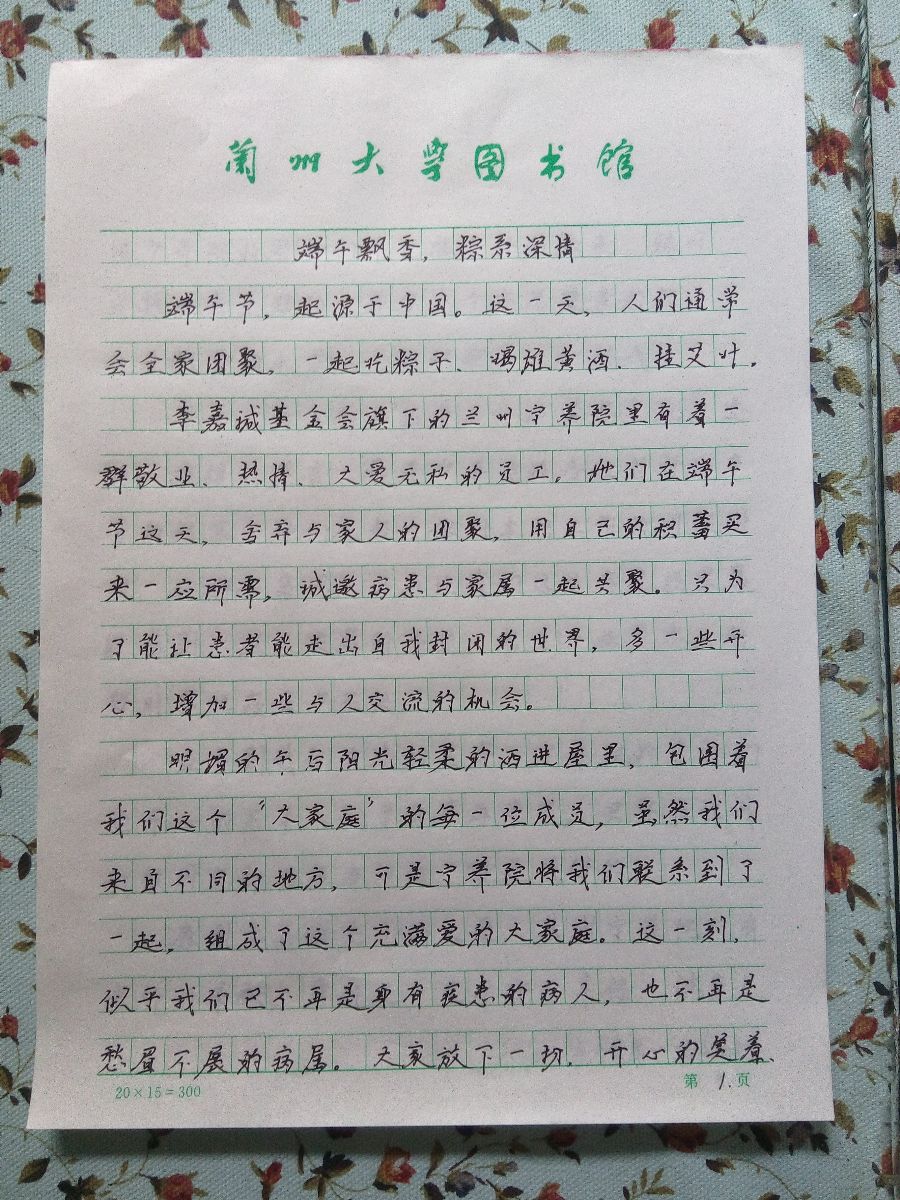 兰州大学图书馆
端午飘香，粽系深情
端午节，起源于中国。这一天，人们通常
会全家团聚，一起吃粽子、喝雄黄酒、挂艾叶。
李嘉诚基金会旗下的兰州宁养院里有着一
群敬业、热情、大爱无私的员工。她们在端午
节这天，舍弃与家人的团聚，用自己的积蓄买
来一应所需，诚邀病患与家属一起共聚。只为
了能让患者能走出自我封闭的世界，多一些开
心，增加一些与人交流的机会。
明媚的午后阳光轻柔的洒进屋里，包围着
我们这个“大家庭”的每一位成员，虽然我们
来自不同的地方，可是宁养院将我们联系到了
一起，组成了这个充满爱的大家庭。这一刻，
似乎我们已不再是身有疾患的病人，也不再是
愁眉不展的病属。大家放下一切，开心的笑着、
20×15=300
第 1. 页